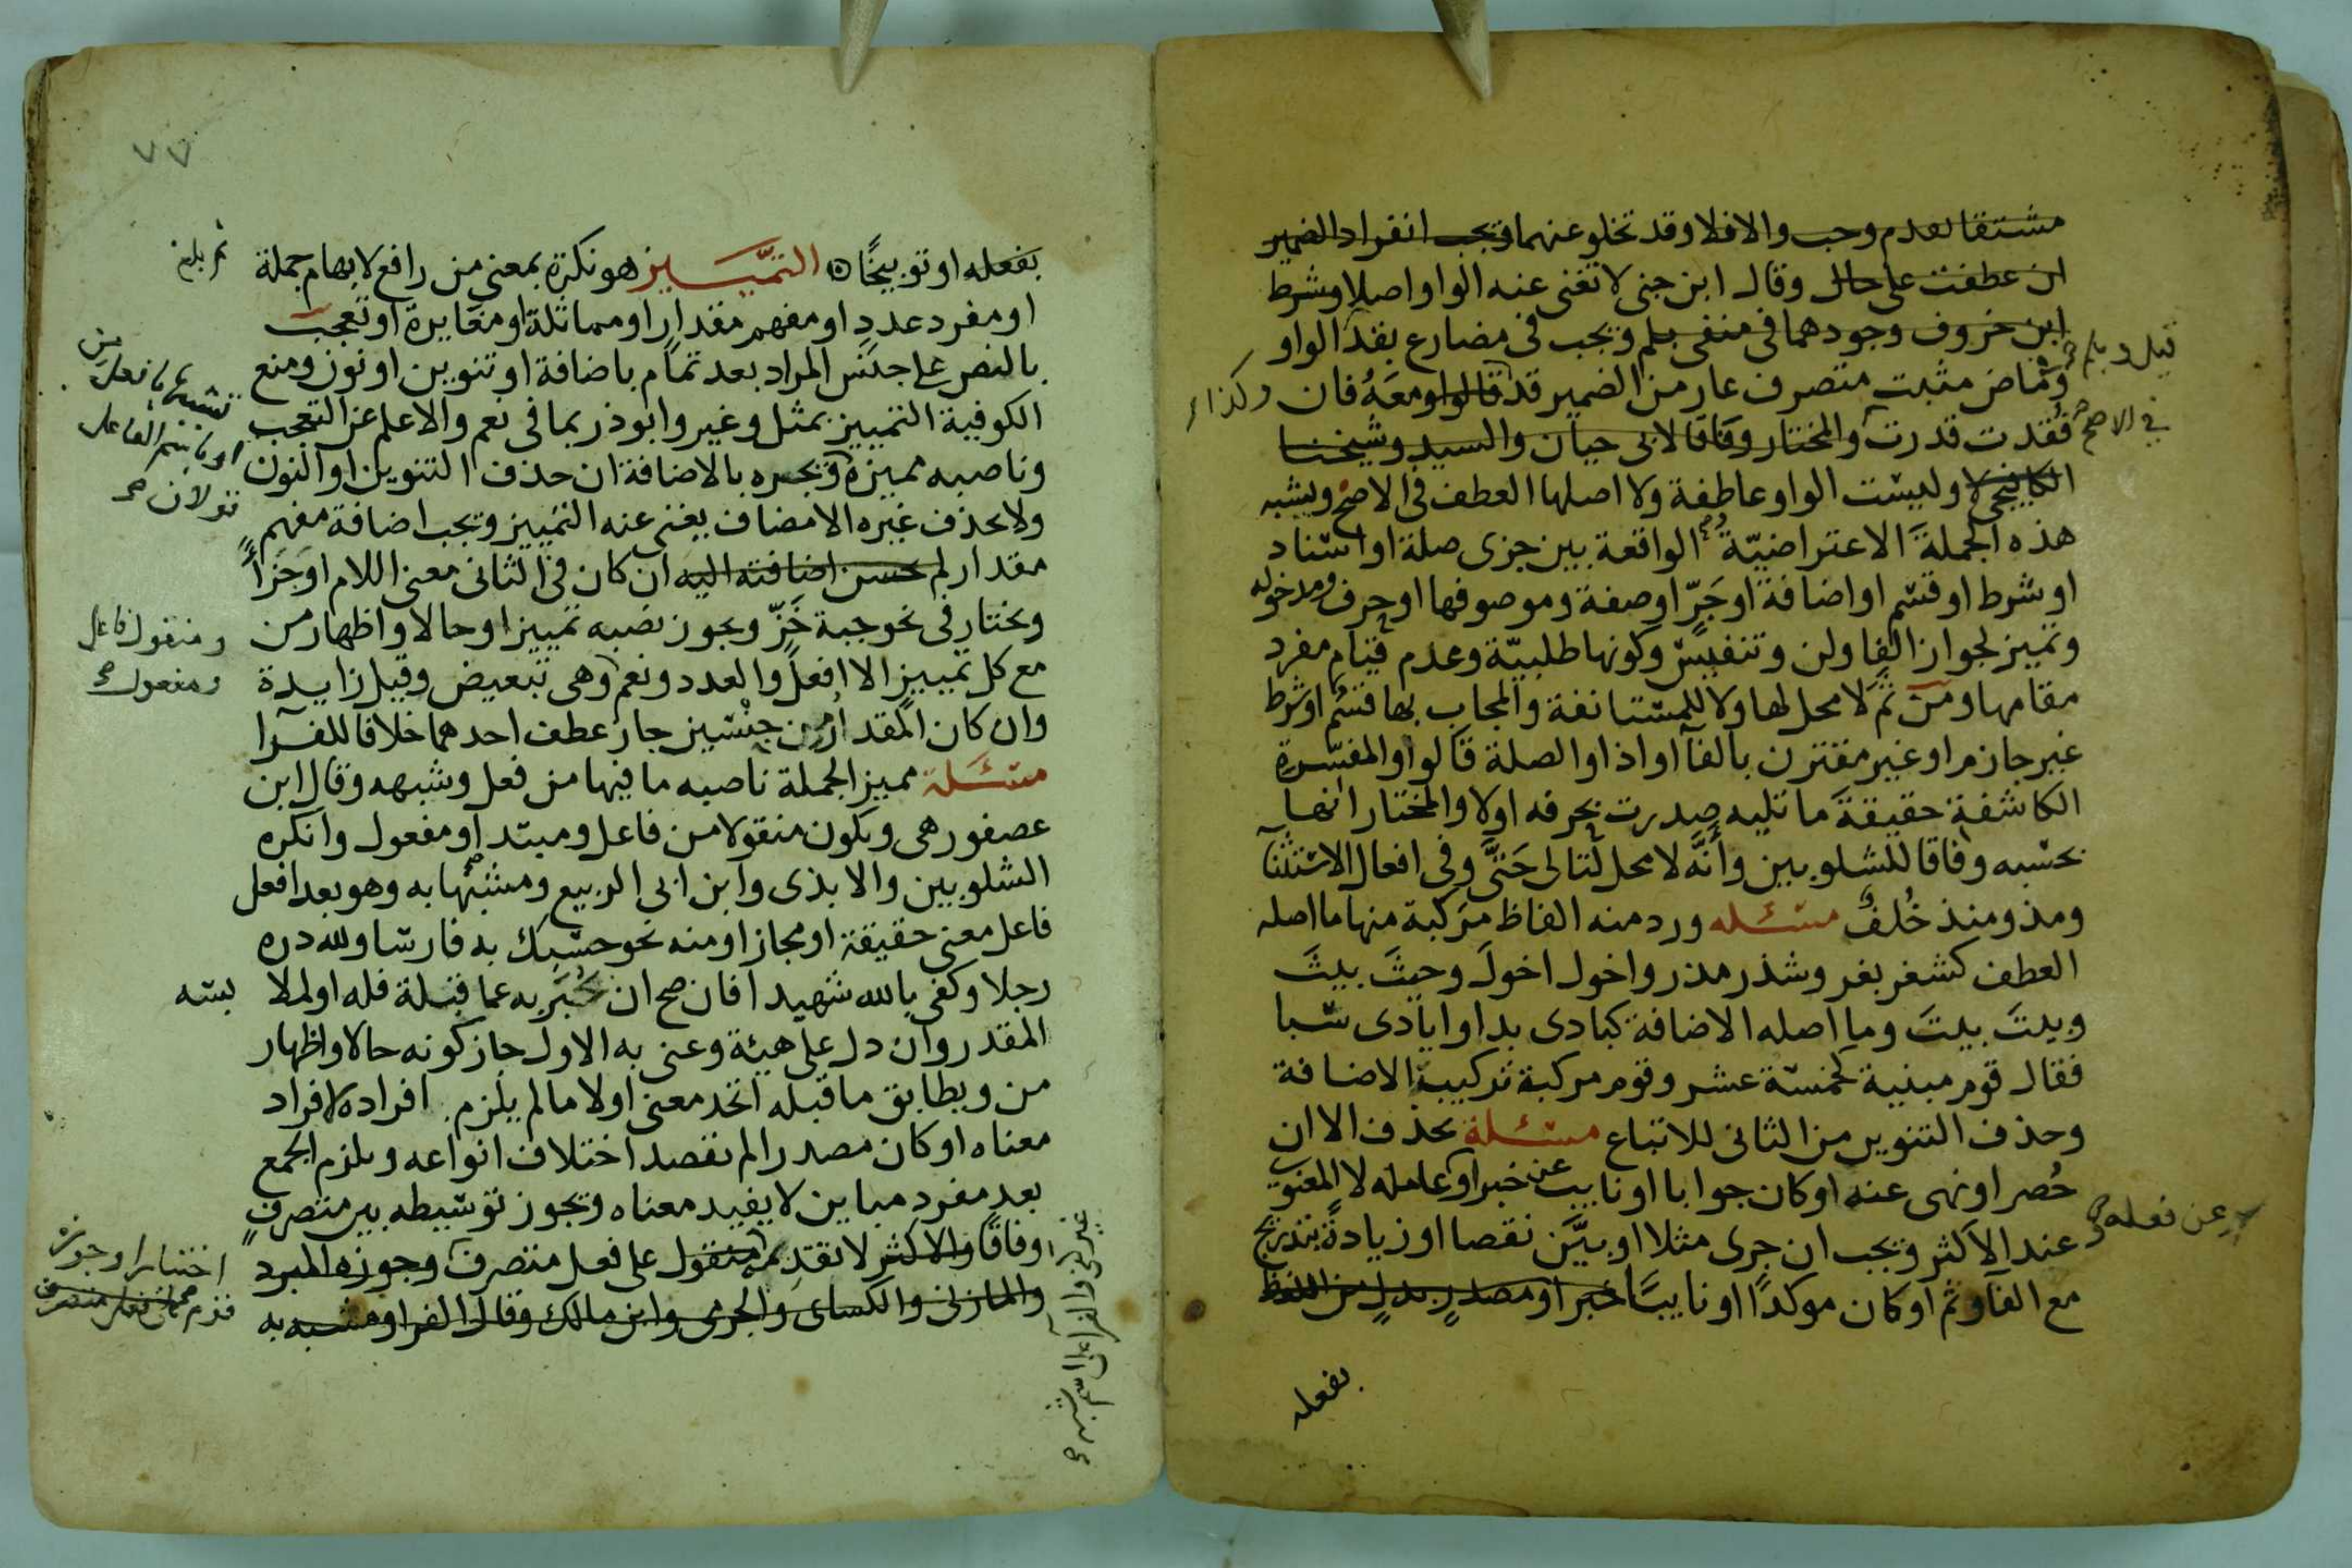 مشتقا تقدم وجب والافلا وقد تخلو عنهما ويجب انفراد الضمير
ان عطفت على حال وقال ابن جنى لا تغنى عنه الواو اصلا وشرط
ابن خروف وجودهما فى منفى بلم ويجب فى مضارع بقد الواو
قيل وبلم
وماض مثبت متصرف عار من الضمير قد قالوا ومعه فان
وكذا
فقدت قدرت والمختار وفاقا لابى حيان والسيد وشيخنا
فى الاصح
الكافيجى لا وليست الواو عاطفة ولا اصلها العطف فى الاصح ويشبه
هذه الجملة الاعتراضية الواقعة بين جزى صلة او اسناد
او شرط او قسم او اضافة او جر او صفة وموصوفها او حرف ومدخوله
وتميز لجواز الفا ولن وتنفيس وكونها طلبية وعدم قيام مفرد
مقامها ومن ثم لا محل لها ولا للمستانفة والمجاب بها قسم او شرط
غير جازم او غير مقترن بالفا او اذا والصلة قالوا والمفسرة
الكاشفة حقيقة ما تليه صدرت بحرفه اولا والمختار انها
بحسبه وفاقا للشلوبين وانه لا محل لتالى حتى وفى افعال الاستثنا
ومذ ومنذ خلف مسئله ورد منه الفاظ مركبة منها ما اصله
العطف كشغر بغر وشذر مذر واخول اخول وحيث بيث
وبيت بيت وما اصله الاضافة كبادى بدا وايادى سبا
فقال قوم مبنية كخمسة عشر وقوم مركبة تركيب الاضافة
وحذف التنوين من الثانى للاتباع مسئلة يحذف الا ان
حصر او نهى عنه او كان جوابا او نايب عن خبر او عامله لا المعنوى
عند الاكثر ويجب ان جرى مثلا او بين نقصا او زيادة بتدريج
عن فعله
مع الفا وثم او كان موكدا او نايبا خبر او مصدر بدل من اللفظ
بفعله
٧٧
بفعله او توبيخا التمييز هو نكرة بمعنى من رافع لابهام جملة
او مفرد عدد او مفهم مقدار او مماثلة او مغايرة او تعجب
بالنص على جنس المراد بعد تمام باضافة او تنوين او نون ومنع
الكوفية التمييز بمثل وغير وابو ذر بما فى نعم والاعلم عن التعجب
وناصبه مميزه ويجره بالاضافة ان حذف التنوين او النون
ولا يحذف غيره الا مضاف يغنى عنه التمييز ويجب اضافة مفهم
مقدار لم يحسن اضافته اليه ان كان فى الثانى معنى اللام او جزأ
ويختار فى نحو جبة خز ويجوز نصبه تمييزا وحالا واظهار من
ومنقول فاعل
مع كل تمييز الا افعل والعدد ونعم وهى تبعيض وقيل زايدة
ومفعول
وان كان المقدار من جنسين جاز عطف احدهما خلافا للفرا
مسئلة مميز الجملة ناصبه ما فيها من فعل وشبهه وقال ابن
عصفور هى ويكون منقولا من فاعل ومبتدا ومفعول وانكره
الشلوبين والابذى وابن ابى الربيع ومشبها به وهو بعد افعل
فاعل معنى حقيقة او مجازا ومنه نحو حسبك به فارسا ولله دره
رجلا وكفى بالله شهيدا فان صح ان يخبر به عما قبله فله او لملا
بسه
المقدر وان دل على هيئة وعنى به الاول جاز كونه حالا واظهار
من ويطابق ما قبله اتحد معنى اولا ما لم يلزم افراده لافراد
معناه او كان مصدرا لم نقصد اختلاف انواعه ويلزم الجمع
بعد مفرد مباين لا يفيد معناه ويجوز توسيطه بين متصرف
وفاقا والاكثر لا نقدمه منقول على فعل متصرف وجوزه المبرد
والمازنى والكساى والجرمى وابن مالك وقال الفرا ومشبه به
اختيارا وجوز